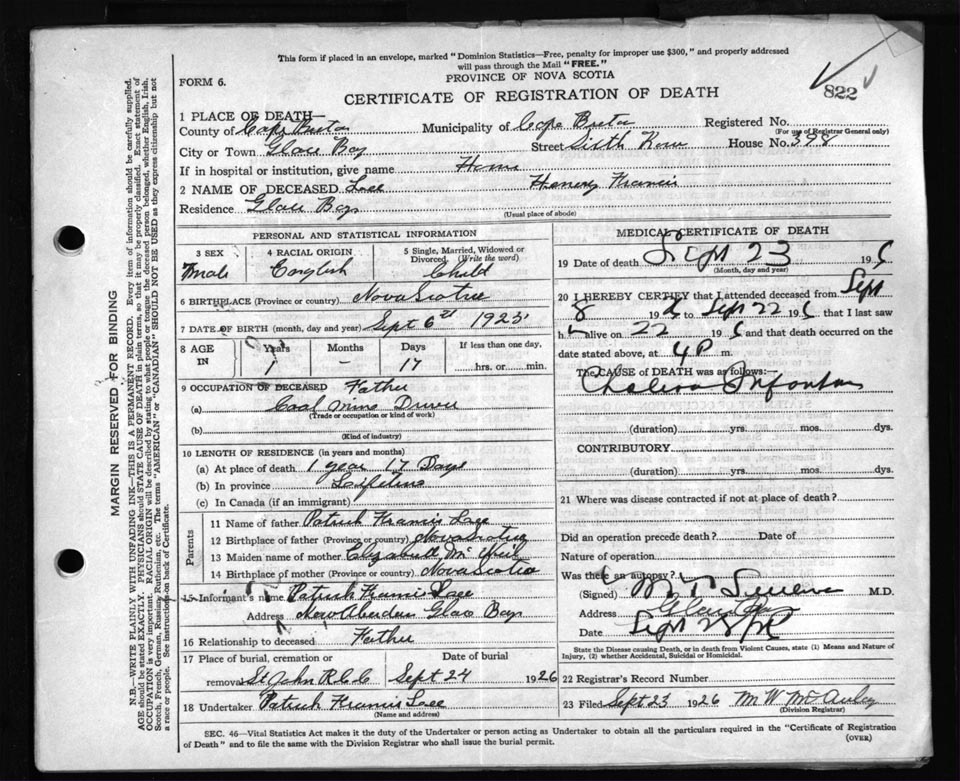 This form if placed in an envelope, marked "Dominion Statistics—Free, penalty for improper use $300," and properly addressed
will pass through the Mail "FREE."
FORM 6.
PROVINCE OF NOVA SCOTIA
822
CERTIFICATE OF REGISTRATION OF DEATH
1 PLACE OF DEATH—
County of Cape Breton Municipality of Cape Breton Registered No.
(For use of Registrar General only)
City or Town Glace Bay Street Sixth Row House No. 398
If in hospital or institution, give name Home
2 NAME OF DECEASED Henery Francis
Residence Glace Bay
(Usual place of abode)
PERSONAL AND STATISTICAL INFORMATION
3 SEX 4 RACIAL ORIGIN 5 Single, Married, Widowed or Divorced. (Write the word)
Male English Child
6 BIRTHPLACE (Province or country) Nova Scotia
7 DATE OF BIRTH (month, day and year) Sept 6th 1925
8 AGE IN Years Months Days If less than one day,
1 - 17 hrs. or min.
9 OCCUPATION OF DECEASED Father
(a) Coal Mine Driver
(Trade or occupation or kind of work)
(b)
(Kind of industry)
10 LENGTH OF RESIDENCE (in years and months)
(a) At place of death 1 year 17 Days
(b) In province Lifetime
(c) In Canada (if an immigrant)
Parents
11 Name of father Patrick Francis
12 Birthplace of father (Province or country) Nova Scotia
13 Maiden name of mother Elizabeth
14 Birthplace of mother (Province or country) Nova Scotia
15 Informant's name Patrick Francis
Address New Aberdeen Glace Bay
16 Relationship to deceased Father
17 Place of burial, cremation or removal Date of burial
St John R.C.C Sept 24 1926
18 Undertaker Patrick Francis
(Name and address)
MEDICAL CERTIFICATE OF DEATH
19 Date of death Sept 23 19
(Month, day and year)
20 I HEREBY CERTIFY that I attended deceased from Sept
8 19 to Sept 22 19 that I last saw
h alive on 22 19 and that death occurred on
date stated above, at 4 P m.
The CAUSE of DEATH was as follows:
Cholera Infantum
(duration) yrs. mos. dys.
CONTRIBUTORY
(duration) yrs. mos. dys.
21 Where was disease contracted if not at place of death?
Did an operation precede death? Date of
Nature of operation
Was there an autopsy?
(Signed) M.D.
Address Glace Bay
Date Sept 23
State the Disease causing Death, or in death from Violent Causes, state (1) Means and Nature of
Injury, (2) whether Accidental, Suicidal or Homicidal.
22 Registrar's Record Number
23 Filed Sept 23 1926 M W McAuley
(Division Registrar)
SEC. 46—Vital Statistics Act makes it the duty of the Undertaker or person acting as Undertaker to obtain all the particulars required in the "Certificate of Registration
of Death" and to file the same with the Division Registrar who shall issue the burial permit.
(OVER)
MARGIN RESERVED FOR BINDING
N.B.—WRITE PLAINLY WITH UNFADING INK—THIS IS A PERMANENT RECORD. Every item of information should be carefully supplied.
AGE should be stated EXACTLY. PHYSICIANS should STATE CAUSE OF DEATH in plain terms, so that it may be properly classified. Exact statement of
OCCUPATION is very important. RACIAL ORIGIN will be described by stating to what people or tongue the deceased person belonged, whether English, Irish,
Scotch, French, German, Russian, Ruthenian, etc. The terms "AMERICAN" or "CANADIAN" SHOULD NOT BE USED as they express citizenship but not
a race or people. See instructions on back of Certificate.